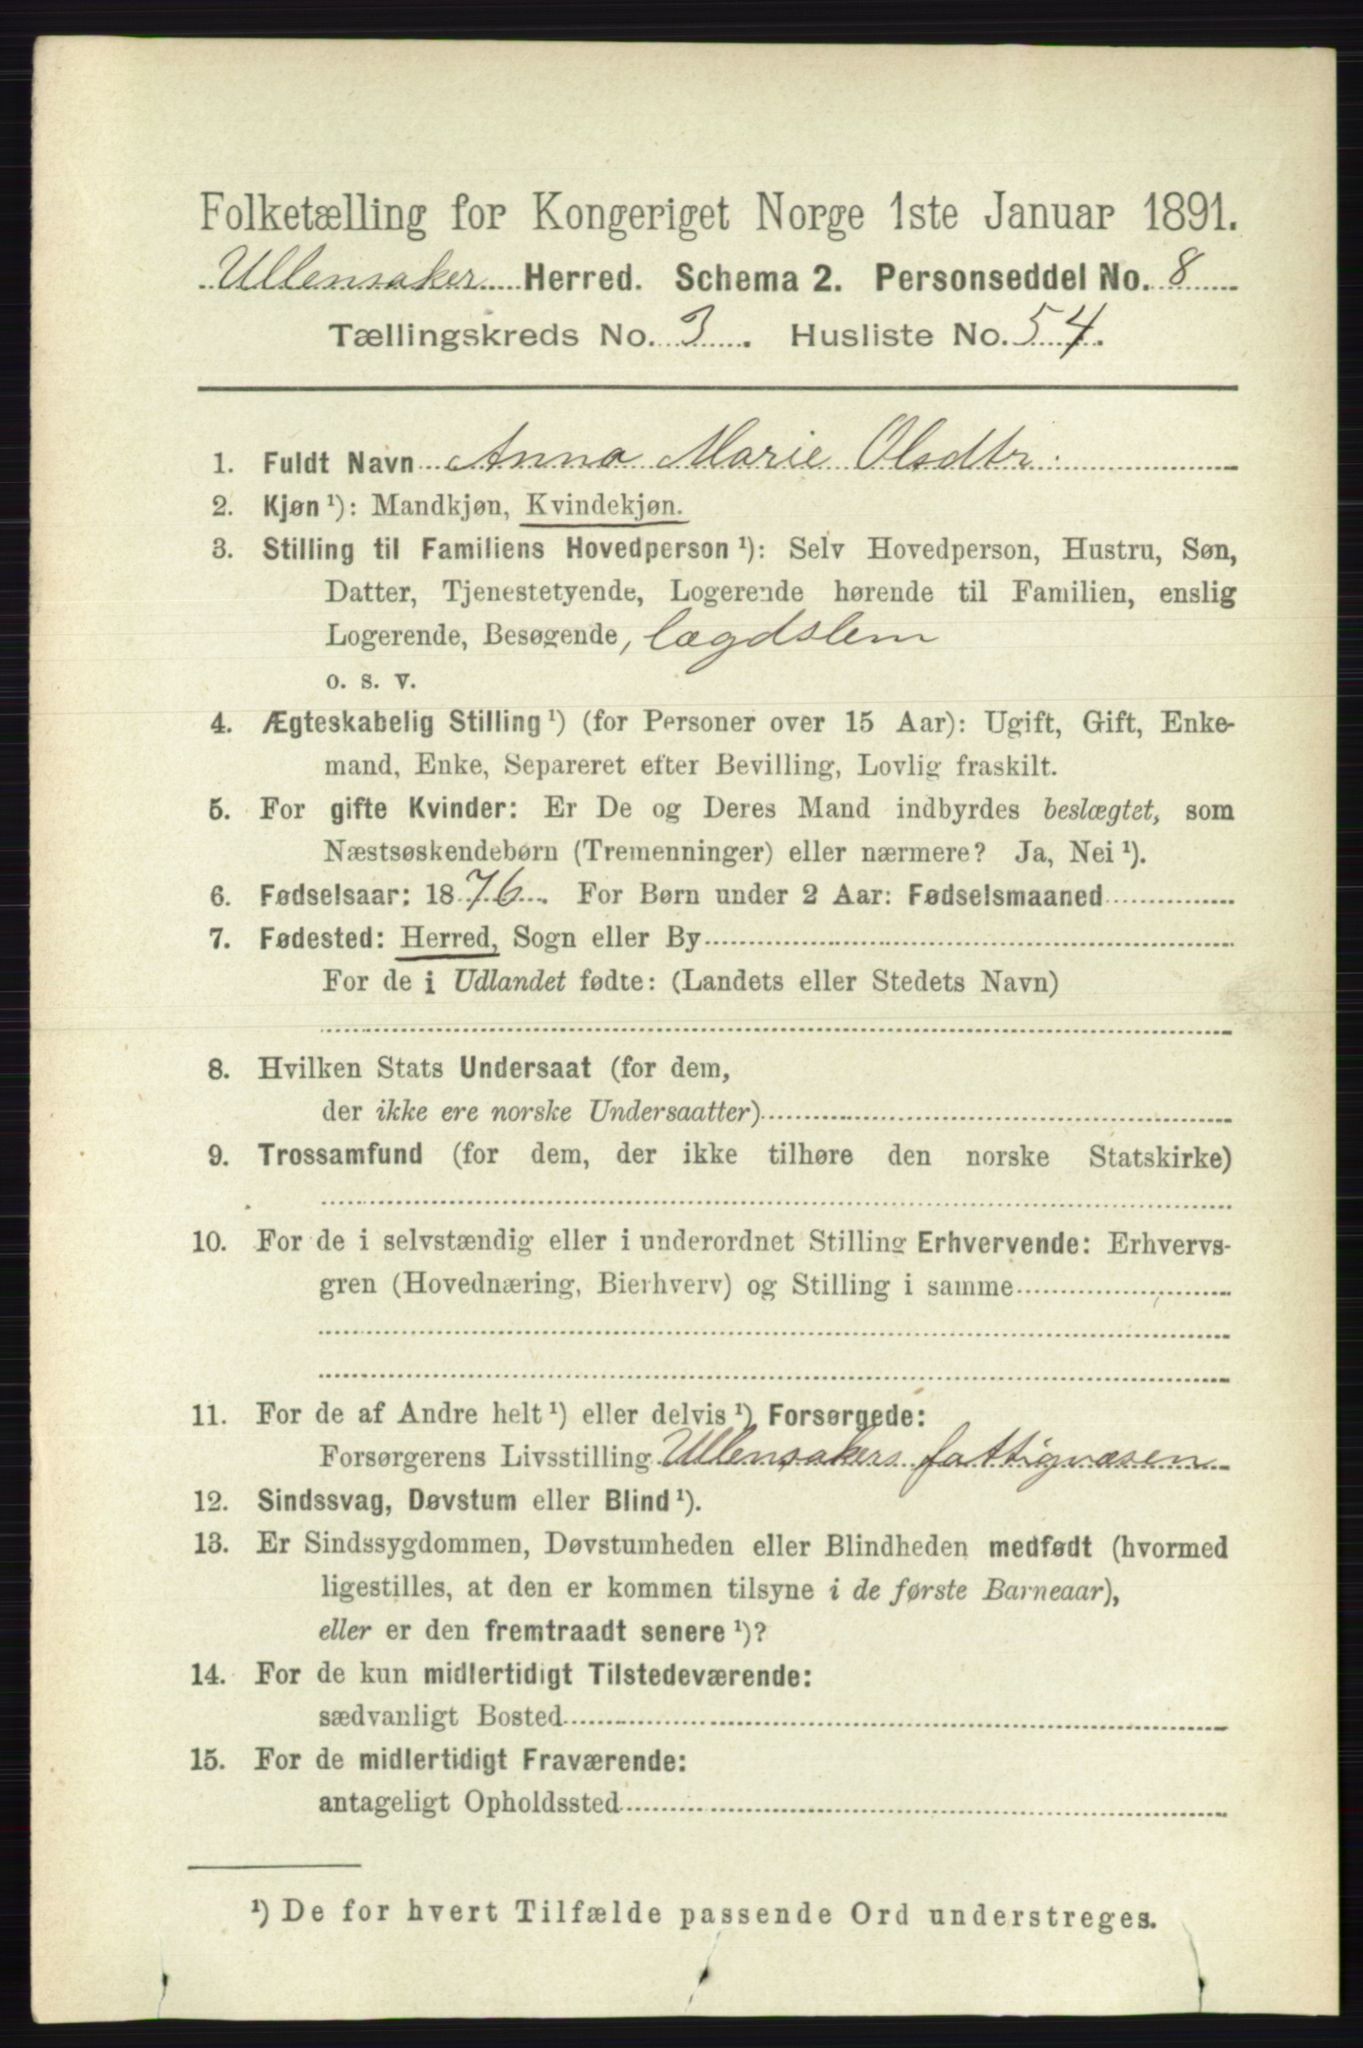 Folketælling for Kongeriget Norge 1ste Januar 1891.
Ullensaker Herred. Schema 2. Personseddel No. 8
Tællingskreds No. 3. Husliste No. 54.
1. Fuldt Navn Anna Marie Olsdtr.
2. Kjøn ¹): Mandkjøn, Kvindekjøn.
3. Stilling til Familiens Hovedperson ¹): Selv Hovedperson, Hustru, Søn,
Datter, Tjenestetyende, Logerende hørende til Familien, enslig
Logerende, Besøgende, lægdslem
o. s. v.
4. Ægteskabelig Stilling ¹) (for Personer over 15 Aar): Ugift, Gift, Enke-
mand, Enke, Separeret efter Bevilling, Lovlig fraskilt.
5. For gifte Kvinder: Er De og Deres Mand indbyrdes beslægtet, som
Næstsøskendebørn (Tremenninger) eller nærmere? Ja, Nei ¹).
6. Fødselsaar: 1876. For Børn under 2 Aar: Fødselsmaaned
7. Fødested: Herred, Sogn eller By
For de i Udlandet fødte: (Landets eller Stedets Navn)
8. Hvilken Stats Undersaat (for dem,
der ikke ere norske Undersaatter)
9. Trossamfund (for dem, der ikke tilhøre den norske Statskirke)
10. For de i selvstændig eller i underordnet Stilling Erhvervende: Erhvervs-
gren (Hovednæring, Bierhverv) og Stilling i samme
11. For de af Andre helt ¹) eller delvis ¹) Forsørgede:
Forsørgerens Livsstilling Ullensakers fattigvæsen
12. Sindssvag, Døvstum eller Blind ¹).
13. Er Sindssygdommen, Døvstumheden eller Blindheden medfødt (hvormed
ligestilles, at den er kommen tilsyne i de første Barneaar),
eller er den fremtraadt senere ¹)?
14. For de kun midlertidigt Tilstedeværende:
sædvanligt Bosted
15. For de midlertidigt Fraværende:
antageligt Opholdssted
¹) De for hvert Tilfælde passende Ord understreges.